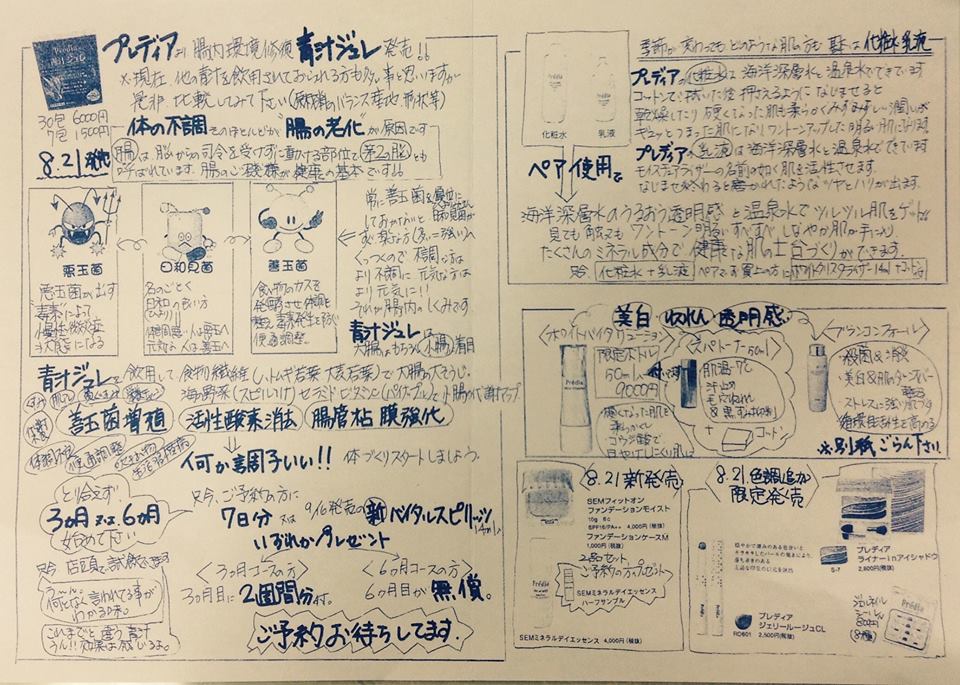 プレディアより 腸内環境修復 青汁ジュレ 発売!!
※現在 他の青汁を飲用されておられる方も多い事と思いますが
是非 比較してみて下さい(原材料のバランス 産地 形状等)
30包 6000円
7包 1500円
8.21発売
体の不調 そのほとんどが "腸の老化" が原因です
腸は、脳からの司令を受けずに動ける部位で第2の脳とも
呼ばれています。腸のご機嫌が健康の基本です!!
悪玉菌
日和見菌
善玉菌
悪玉菌が出す
"毒素"によって
慢性微炎症
状態になる
名のごとく
日和の良い方
体調悪い人は悪玉へ
元気な人は善玉へ
食物のカスを
発酵させ体調を
整え 毒素発生を防ぐ
便通調整。
常に善玉菌を優位に
しておかないと
日和見菌が
くっつくので 不調な方は
より不調に 元気な方は
より元気に!!
それが腸内のしくみです
青汁ジュレは
大腸はもちろん小腸に着目
青汁ジュレを飲用して 食物繊維(ハトムギ若葉 大麦若葉)で大腸の大そうじ。
善玉菌増殖 活性酸素消去 腸管粘膜強化
便通調整
何か調子いい!! 体づくりスタートしましょう。
とり合えず
3ヵ月 又は 6ヵ月
始めて下さい
只今、ご予約の方に
7日分 又は 9/1発売の 新 バイタルスピリッツ 14ml
いずれかプレゼント
只今 店頭で試飲できます
う〜ん
何となく言われてる事が
わかる味。
これまでと違う青汁
うん!!効果は感じるよ。
<3ヵ月コースの方>
3ヵ月目に 2週間分付。
<6ヵ月コースの方>
6ヵ月目が 無償。
ご予約お待ちしてます。
化粧水
乳液
季節が変わっても どのような肌の方も 要は 化粧水 乳液
プレディアの化粧水は 海洋深層水と温泉水でできています
コットンで拭いた後 押さえるように なじませると
乾燥したり 硬くなった肌も柔らかく みずみずしい潤いが
ギュッとつまった肌になり ワントーンアップした明るい肌になります
プレディアの乳液は 海洋深層水と温泉水でできています
モイスチュアライザーの名前の如く 肌を活性させます。
なじませ終わると磨かれたような ツヤとハリが出ます。
ペア使用で
海洋深層水のうるおう透明感 と 温泉水でツルツル肌をゲット
見ても触っても ワントーン明るい すべすべ しなやか肌が手に入り
たくさんのミネラル成分で 健康な肌の土台づくりができます。
只今 化粧水+乳液 ペアでお買上の方に
美白 収れん 透明感
限定ボトル
50ml入
9000円
硬くなった肌を
柔らかくし
日やけしにくい肌に
スパトーナー50ml
肌温-7℃
汗止め
毛穴収れん
& 黒ずみ抑制
+
コットン
殺菌&消炎
美白&肌のターンオーバー
ストレスに強い肌づくり
※別紙ごらん下さい
8.21新発売
SEMフィットオン
ファンデーションモイスト
10g 6c
SPF16/PA++ 4,000円(税抜)
ファンデーションケースM
1,000円(税抜)
2品セット
ご予約の方へプレゼント
SEMミネラルデイエッセンス
ハーフサンプル
SEMミネラルデイエッセンス 4,000円(税抜)
8.21 色調追加
限定発売
プレディア
ライナーinアイシャドウ
S-7 2,800円(税抜)
プレディア
ジェリールージュCL
RD601 2,500円(税抜)